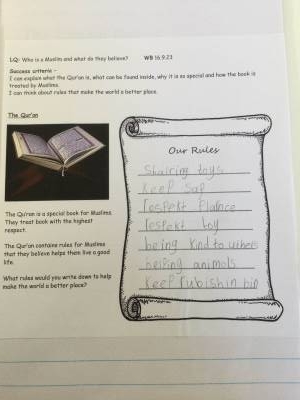 LQ: Who is a Muslim and what do they believe? WB 16.9.23
Success criteria -
I can explain what the Qur'an is, what can be found inside, why it is so special and how the book is
treated by Muslims.
I can think about rules that make the world a better place.
The Qur'an
The Qur'an is a special book for Muslims.
They treat book with the highest
respect.
The Qur'an contains rules for Muslims
that they believe helps them live a good
life.
What rules would you write down to help
make the world a better place?
Our Rules
Shairing toys
Keep Saf
respekt Plance
respekt toy
being kind to uthers
helping animols
Keep rubish in bin